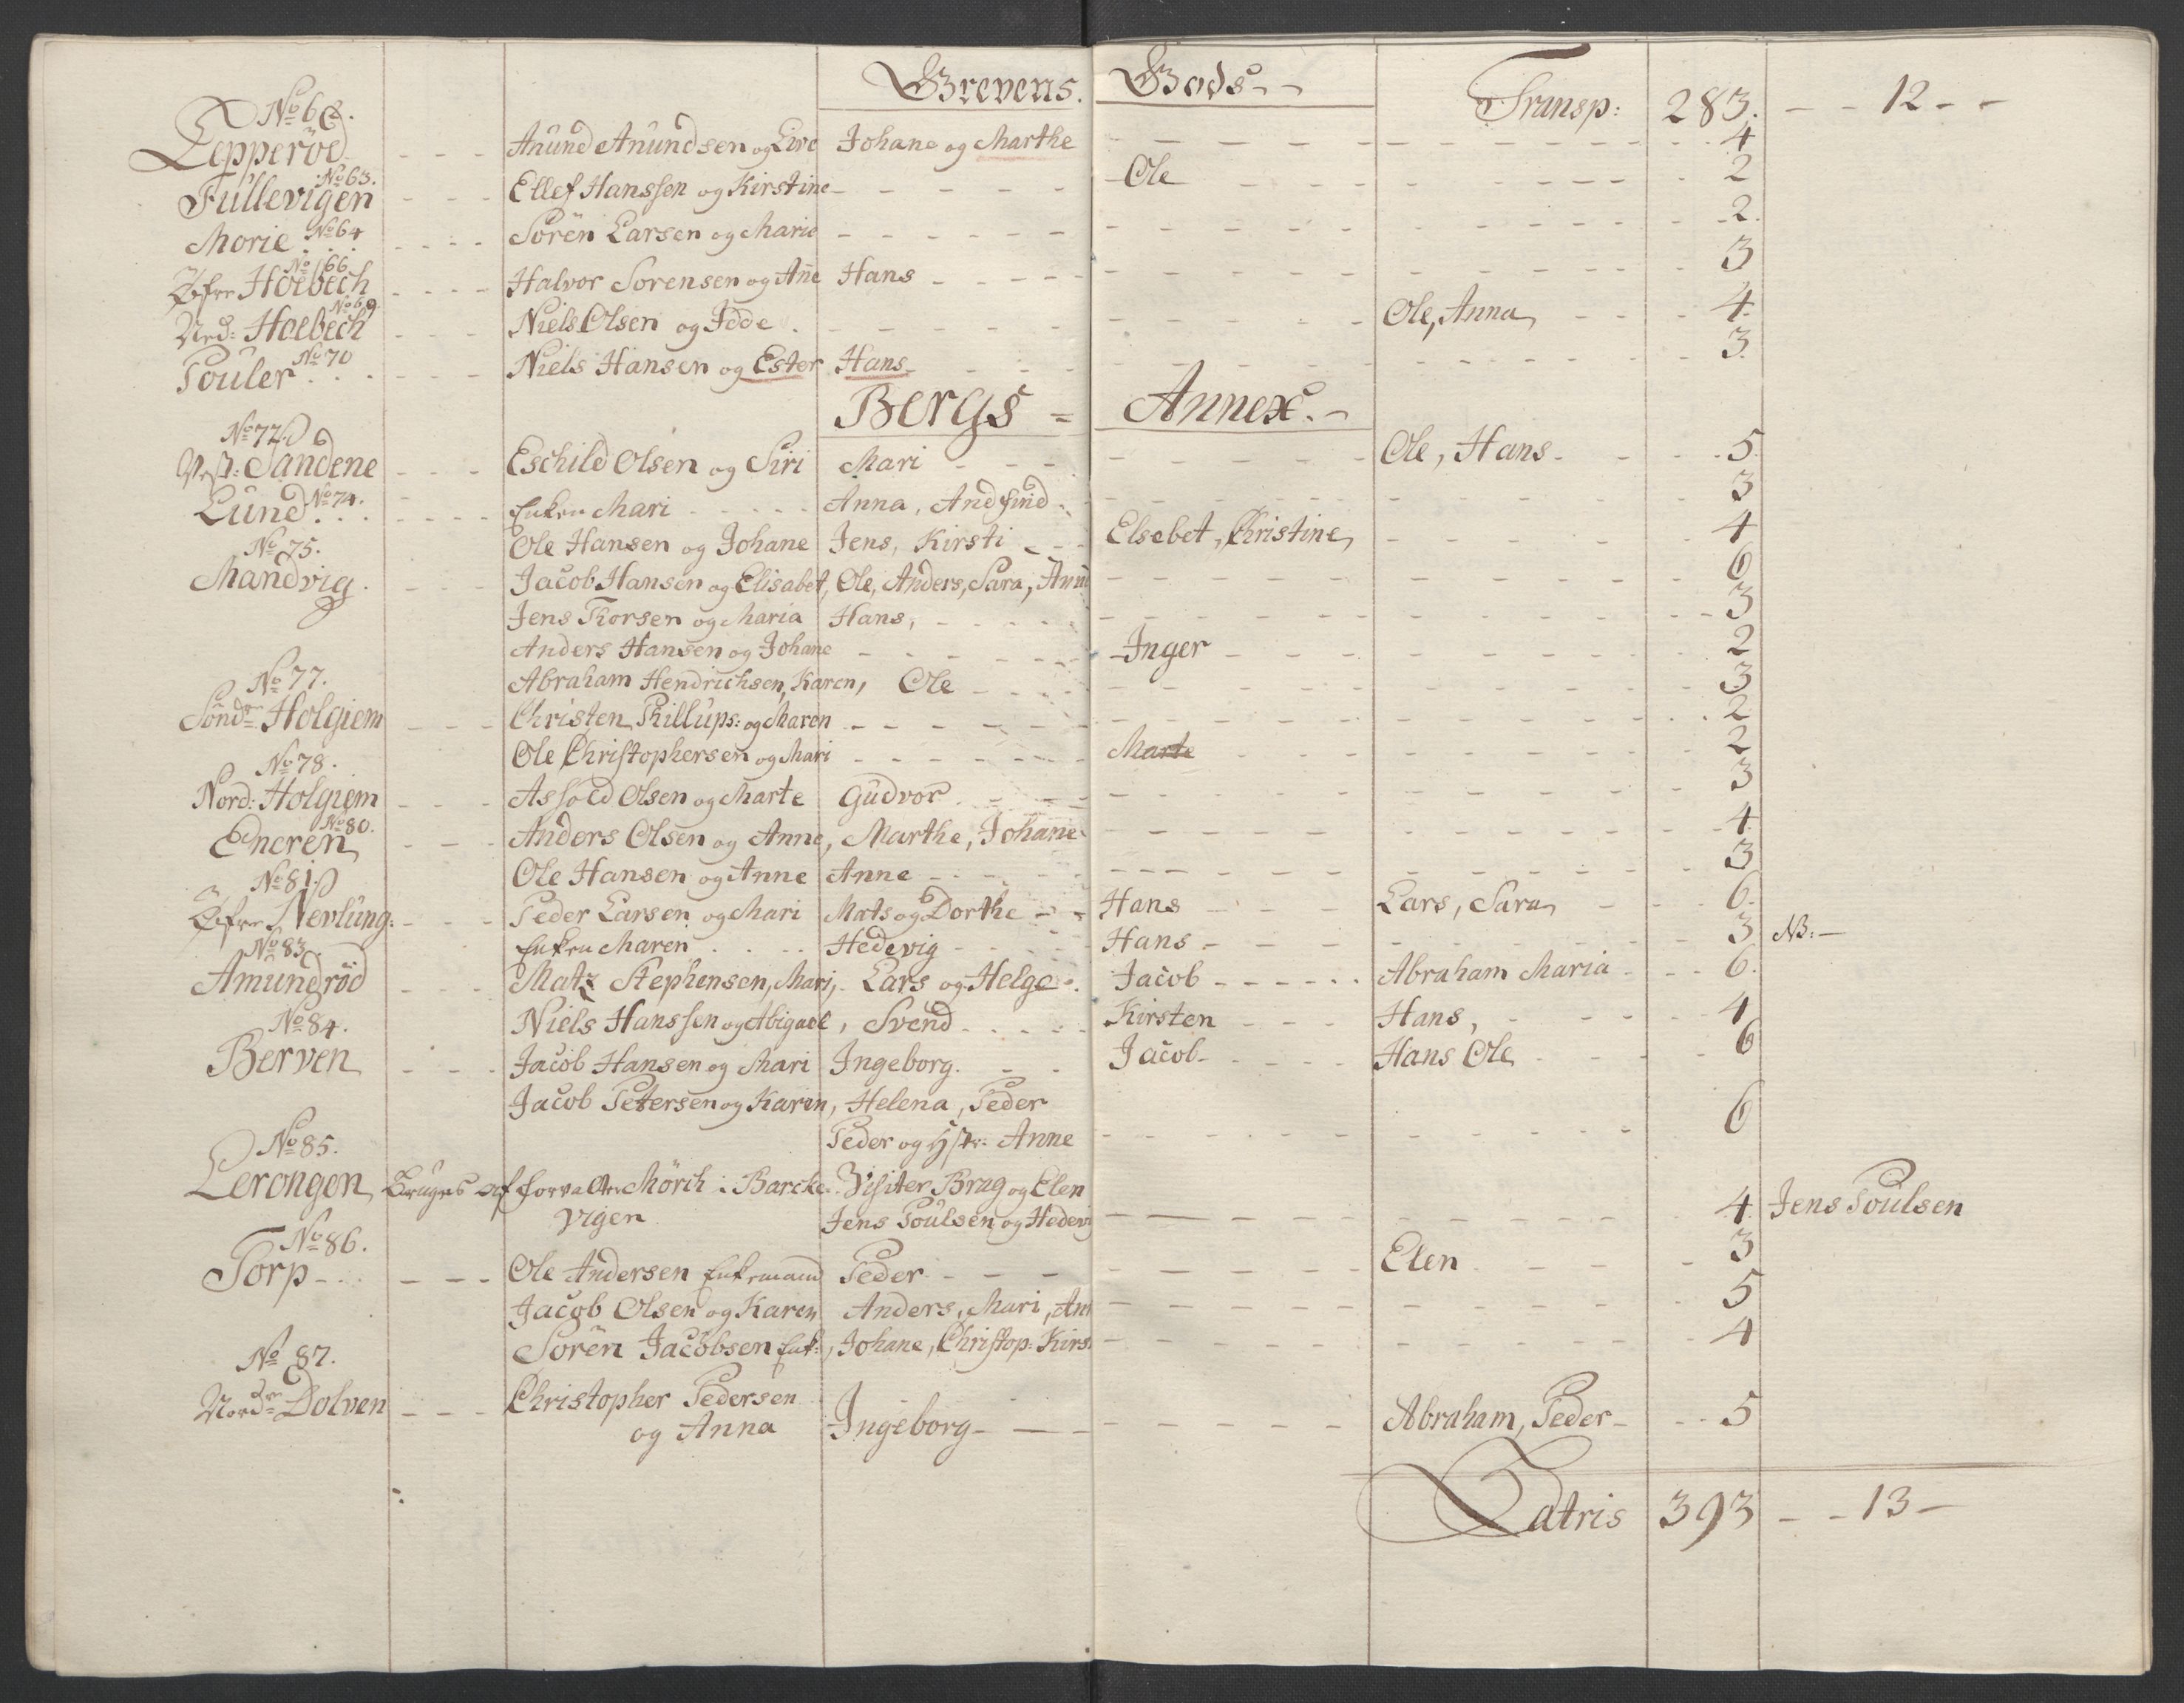 Grevens. Gods--
Transp: 283. - - 12 - -
No 62.
Lepperöd - - - Anund Anundsen og Live Johane og Marthe 4
No 63.
Fullevigen - - - Ellef Hansen og Kirstine - Ole 2
Morie No 64 - - - Sören Larsen og Marie - 2.
No 66
Øfre Holbech - - - Halvor Sörensen og Ane Hans - 3
No 69
Ned: Holbech - - - Niels Olsen og Idde. - Ole, Anna 4.
Pouler No 70 - - - Niels Hansen og Ester Hans - 3.
Bergs = Annex. -
No 72.
Vest: Sandene - - - Eschild Olsen og Siri Mari - Ole, Hans - 5.
Lund No 74. - - - Enken Mari - Anna, Andfind - 3
No 75. Ole Hansen og Johane Jens, Kirsti - Elsebet, Christine, 4
Mandvig. - - - Jacob Hansen og Elisabet, Ole, Anders, Sara, Anne 6
Jens Thorsen og Maria Hans, - 3
Anders Hansen og Johane - Inger - 2
No 77. Abraham Hendrichsen, Karen, Ole - 3
Sönd: Holgiem - - - Christen Phillups: og Maren - 2
No 78. Ole Christophersen og Mari - Marte - 2
Nord: Holgiem - - - Assold Olsen og Marte Gudvor - 3
No 80.
Eneren - - - Anders Olsen og Anne, Marthe, Johane - 4
No 81. Ole Hansen og Anne Anne - 3
Øfre Nevlung: - - - Peder Larsen og Mari Mats og Dorthe - Hans - Lars, Sara 6.
No 83. Enken Maren - Hedevig - Hans - 3 NB: -
Amundröd - - - Matz Stephensen, Mari, Lars og Helge. Jacob - Abraham Maria - 6.
No 84. Niels Hanssen og Abigael, Svend - Kirsten - Hans, 4
Berven - - - Jacob Hansen og Mari Ingeborg. - Jacob - Hans Ole 6
Jacob Petersen og Karen, Helena, Peder
Peder og Hstr: Anne - 6
No 85.
Lerongen Bruges af Forvalter Mörch i Barcke- Visiter Brag og Elen
vigen Jens Poulsen og Hedevi - 4. Jens Poulsen
No 86.
Torp - - - Ole Andersen Enkemand Peder - Elen 3
Jacob Olsen og Karen Anders, Mari, An 5
Sören Jacobsen Enk:, Johane, Christop: Kirs 4
No 87.
Nord: Dolven - - - Christopher Pedersen
og Anna Ingeborg - Abraham, Peder - 5
Latris 393 - - 13 -